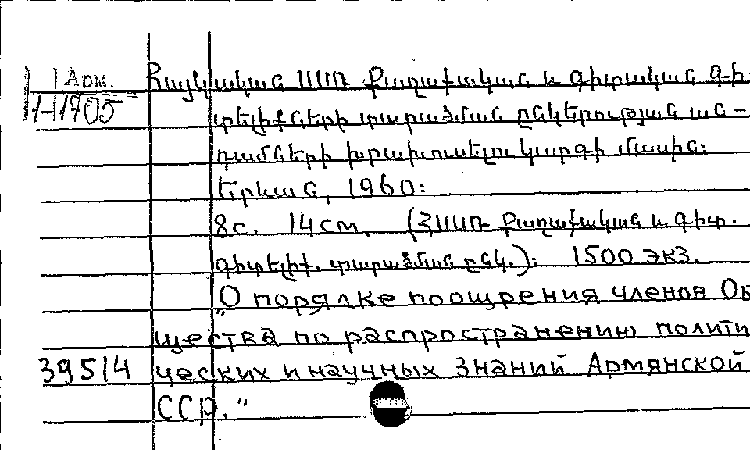 Арм. Հայկական ՍՍՌ Քաղաքական և Գիտական Գի-
1-11705 տելիքների տարածման ընկերության ան-
դամների խրախուսելու կարգի մասին:
Երևան, 1960:
8с. 14см. (ՀՍՍՌ Քաղաքական և Գիտ.
գիտելիք. տարածման ընկ.): 1500 экз.
„О порядке поощрения членов Об
щества по распространению полити
39514 ческих и научных знаний Армянской
ССР.“